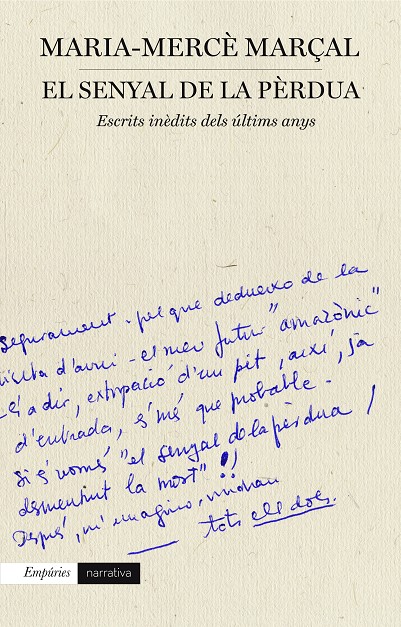 MARIA-MERCÈ MARÇAL
EL SENYAL DE LA PÈRDUA
Escrits inèdits dels últims anys
Segurament - pel que dedueixo de la
visita d'avui - el meu futur "amazònic"
- és a dir, extirpació d'un pit, així, ja
d'entrada, és més que probable.
Si és només "el senyal de la pèrdua /
desmentint la mort" !!
Després, m'imagino, vindran
tots ells dols.
Empúries narrativa